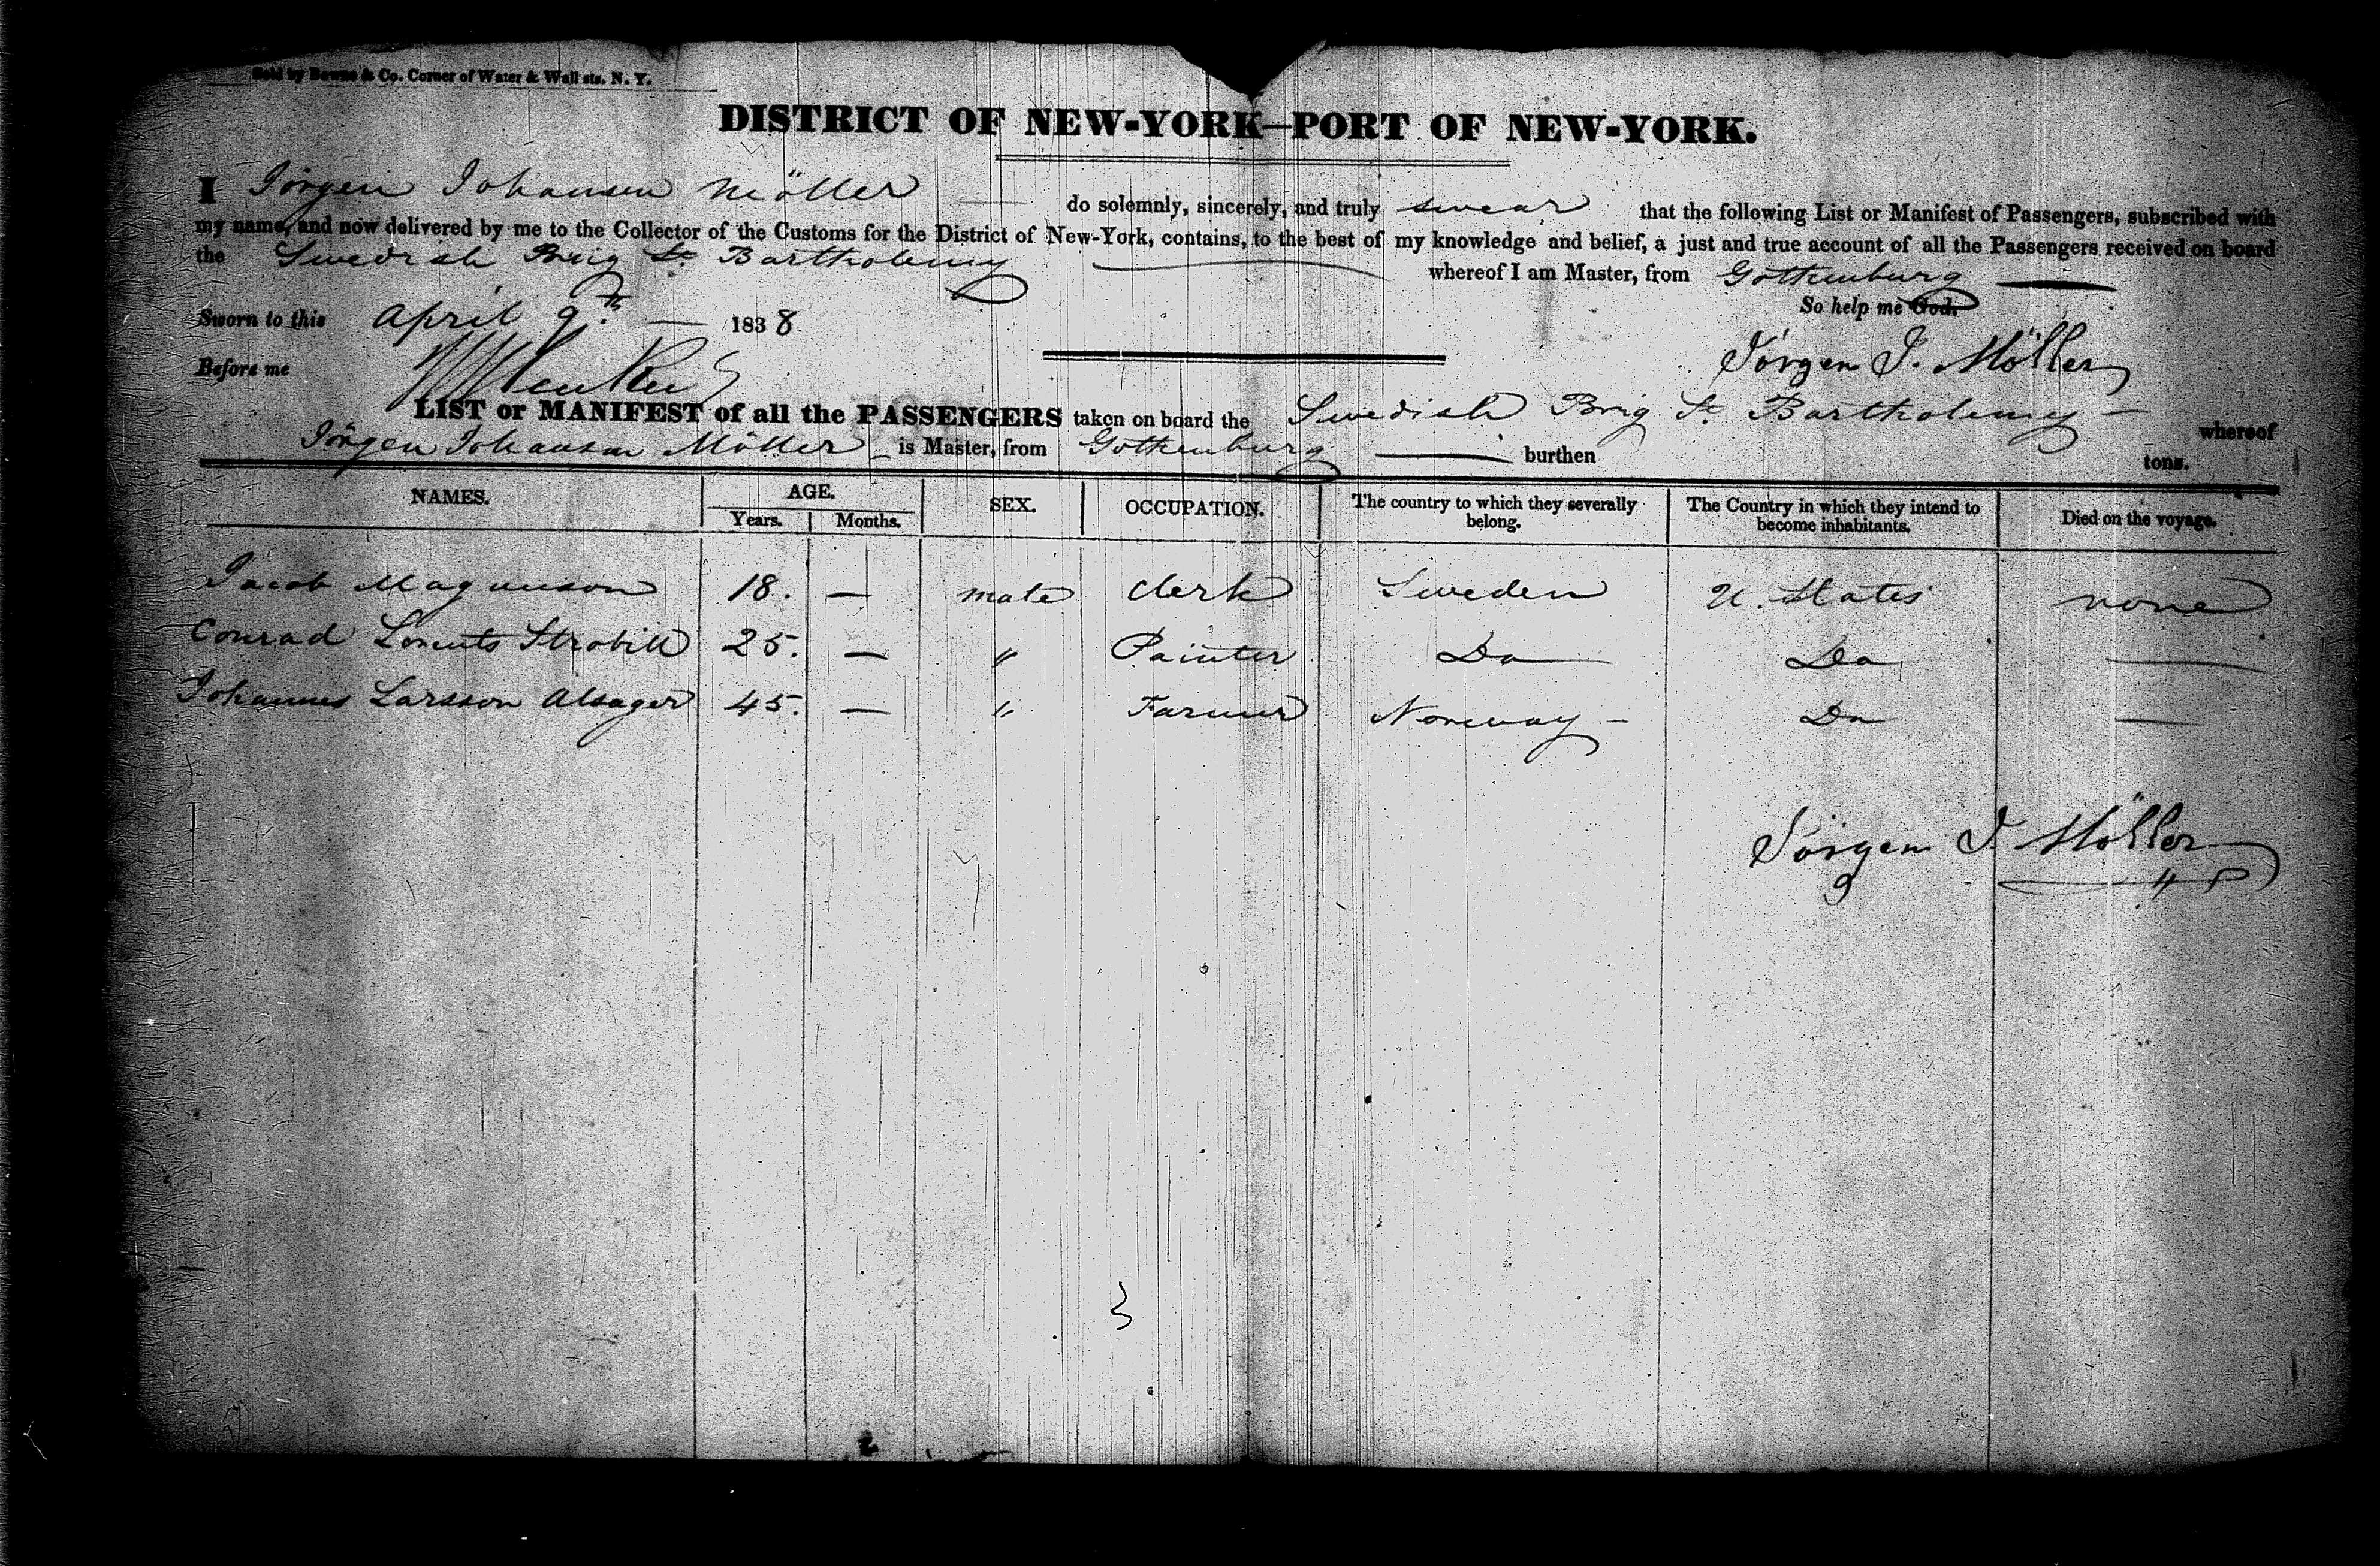 Sold by Bowne & Co. Corner of Water & Wall sts. N. Y.
DISTRICT OF NEW-YORK—PORT OF NEW-YORK.
I Jörgen Johansen Möller do solemnly, sincerely, and truly swear that the following List or Manifest of Passengers, subscribed with
my name, and now delivered by me to the Collector of the Customs for the District of New-York, contains, to the best of my knowledge and belief, a just and true account of all the Passengers received on board
the Swedish Brig St Bartholemy whereof I am Master, from Gothenburg
So help me God.
Sworn to this April 9th 1838
Before me
Jörgen J. Möller
LIST or MANIFEST of all the PASSENGERS taken on board the Swedish Brig St Bartholemy — whereof
Jörgen Johansen Möller is Master, from Gothenburg burthen tons.
NAMES. AGE. SEX. OCCUPATION. The country to which they severally belong. The Country in which they intend to become inhabitants. Died on the voyage.
Years. Months.
Jacob Magnuson 18. — male Clerk Sweden U. States none
Conrad Lorents 25. — " Painter Do Do —
Johannes Larsson Alsager 45. — " Farmer Norway — Do —
Jörgen J. Möller
3